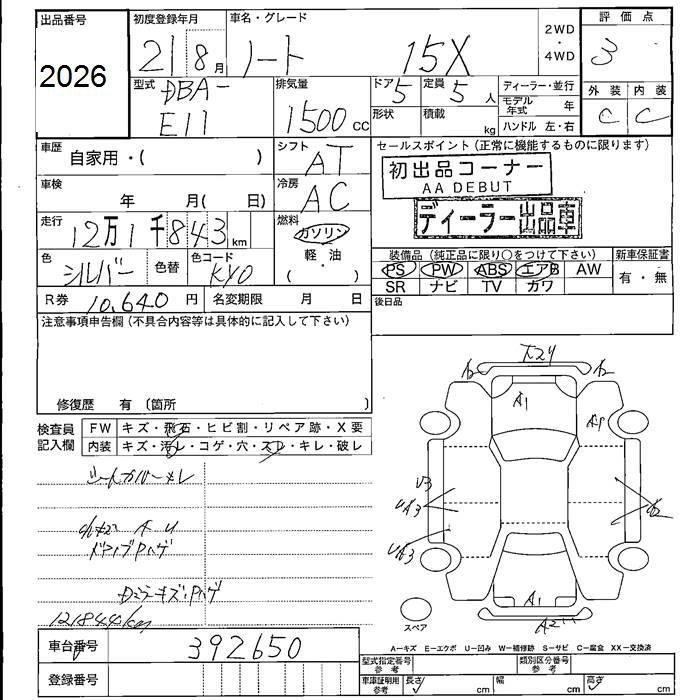 出品番号 2026
初度登録年月 21 8月
車名・グレード ノート 15X
2WD・4WD
評価点 3
外装 C 内装 C
型式 DBA-E11
排気量 1500 cc
ドア 5 定員 5 人
形状 積載 kg
ディーラー・並行
モデル年式 年
ハンドル 左・右
車歴 自家用・( )
シフト AT
セールスポイント(正常に機能するものに限ります)
初出品コーナー
AA DEBUT
ディーラー出品車
車検 年 月( 日)
冷房 AC
走行 12万1千843 km
燃料 ガソリン
軽・油
( ・ )
色 シルバー 色替 色コード KY0
装備品(純正品に限り○をつけて下さい)
PS PW ABS エアB AW
SR ナビ TV カワ
新車保証書
有・無
R券 10,640 円 名変期限 月 日
後日品
注意事項申告欄(不具合内容等は具体的に記入して下さい)
修復歴 有 (箇所 )
検査員記入欄
FW キズ・飛石・ヒビ割・リペア跡・X要
内装 キズ・汚レ・コゲ・穴・スレ・キレ・破レ
シートカバー
121844km
A1
U3
A1
スペア
A-キズ E-エクボ U-凹み W-補修跡 S-サビ C-腐食 XX-交換済
車台番号 392650
登録番号
型式指定番号 参考
類別区分番号 参考
車庫証明用 参考 長さ cm 幅 cm 高さ cm